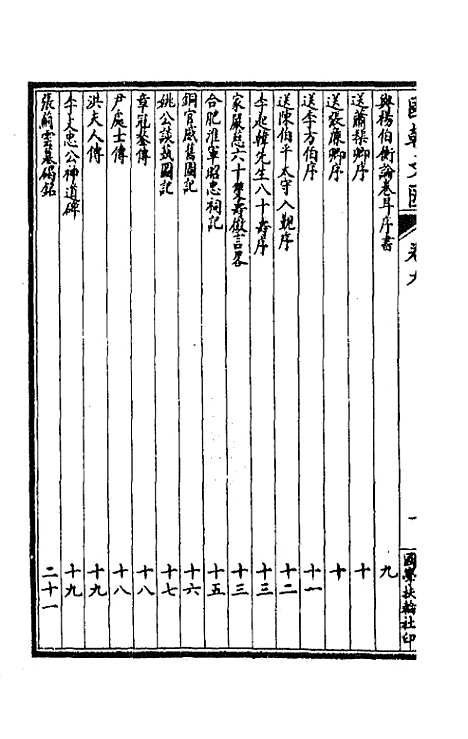 國朝文匯 卷九 一 國學扶輪社印
與楊伯衡論卷耳序書 九
送蕭榘卿序 十
送張廉卿序 十
送李方伯序 十一
送陳伯平太守入覲序 十二
李兆韓先生八十壽序 十三
家嚴慈六十雙壽徵言畧 十三
合肥淮軍昭忠祠記 十五
銅官感舊圖記 十六
姚公談藝圖記 十七
章冠鼇傳 十八
尹處士傳 十八
洪夫人傳 十九
李文忠公神道碑 十九
張靖雲墓碣銘 二十一